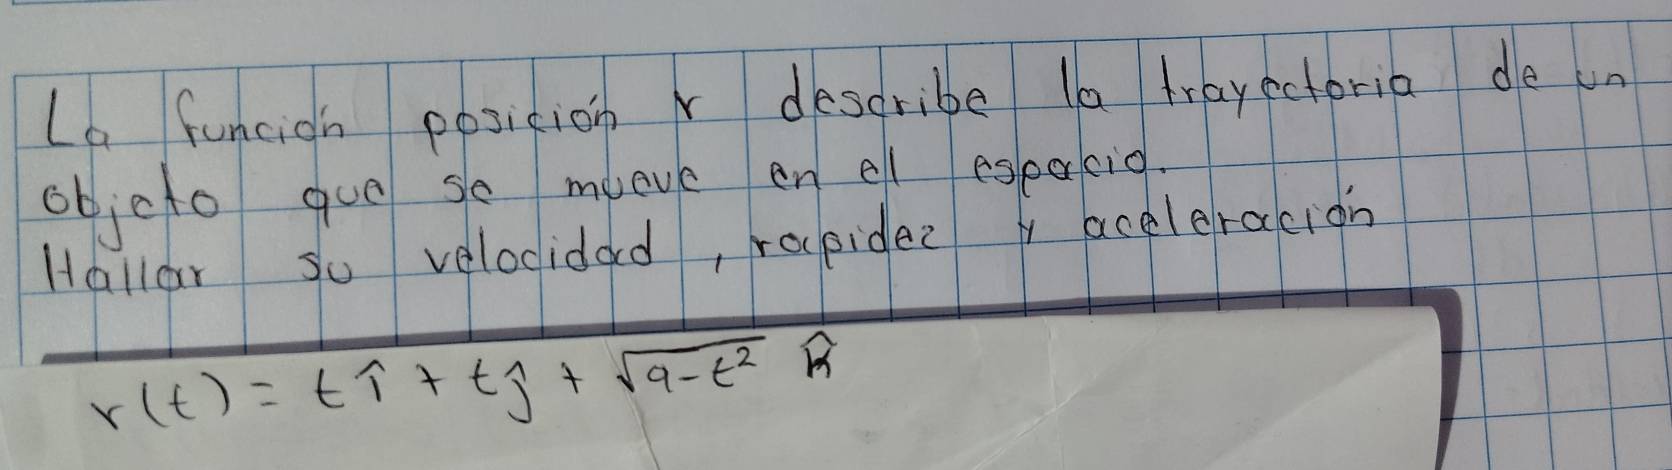 La función posición r describe la trayectoria de un
objeto que se mueve en el espacio.
Hallar su velocidad, rapidez y aceleración
r(t) = t î + t ĵ + √9-t² k̂